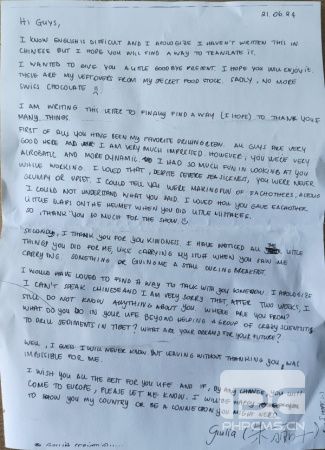 21.06.24
HI GUYS,
I KNOW ENGLISH IS DIFFICULT AND I APOLOGIZE I HAVEN'T WRITTEN THIS IN
CHINESE BUT I HOPE YOU WILL FIND A WAY TO TRANSLATE IT.
I WANTED TO GIVE YOU A LITTLE GOODBYE PRESENT. I HOPE YOU WILL ENJOY IT.
THESE ARE MY LEFTOVERS FROM MY SECRET FOOD STOCK. SADLY, NO MORE
SWISS CHOCOLATE
I AM WRITING THIS LETTER TO FINALLY FIND A WAY (I HOPE) TO THANK YOU
MANY THINGS.
FIRST OF ALL YOU HAVE BEEN MY FAVORITE DRILLING CREW. ALL GUYS ARE VERY
GOOD HERE AND I AM VERY MUCH IMPRESSED. HOWEVER, YOU WERE VERY
ACROBATIC AND MORE DYNAMIC. I HAD SO MUCH FUN IN LOOKING AT YOU
WHILE WORKING. I LOVED THAT, DESPITE SEVERE SICKNESS, YOU WERE NEVER
GRUMPY OR UPSET. I COULD TELL YOU WERE MAKING FUN OF EACHOTHERS, ALTHOUGH
I COULD NOT UNDERSTAND WHAT YOU SAID. I LOVED HOW YOU GAVE EACHOTHER
LITTLE SLAPS ON THE HELMET WHEN YOU DID LITTLE MISTAKES.
SO, THANK YOU SO MUCH FOR THE SHOW.
SECONDLY, I THANK YOU FOR YOU KINDNESS. I HAVE NOTICED ALL LITTLE
THINGS YOU DID FOR ME, LIKE CARRYING MY STUFF WHEN YOU SAW ME
CARRYING SOMETHING OR GIVING ME A STALL DURING BREAKFAST.
I WOULD HAVE LOVED TO FIND A WAY TO TALK WITH YOU SOMEHOW. I APOLOGISE
I CAN'T SPEAK CHINESE AND I AM VERY SORRY THAT, AFTER TWO WEEKS, I
STILL DO NOT KNOW ANYTHING ABOUT YOU. WHERE ARE YOU FROM?
WHAT DO YOU DO IN YOUR LIFE BEYOND HELPING A GROUP OF CRAZY SCIENTISTS
TO DRILL SEDIMENTS IN TIBET? WHAT ARE YOUR DREAMS FOR YOUR FUTURE?
WELL, I GUESS I WILL NEVER KNOW BUT LEAVING WITHOUT THANKING YOU, WAS
IMPOSSIBLE FOR ME.
I WISH YOU ALL THE BEST FOR YOU LIFE AND IF, BY ANY CHANCE, YOU WILL
COME TO EUROPE, PLEASE LET ME KNOW. I WILL BE HAPPY
TO SHOW YOU MY COUNTRY OR BE A CONNECTION YOU MIGHT NEED.
Giulia
PHPCMS.CN